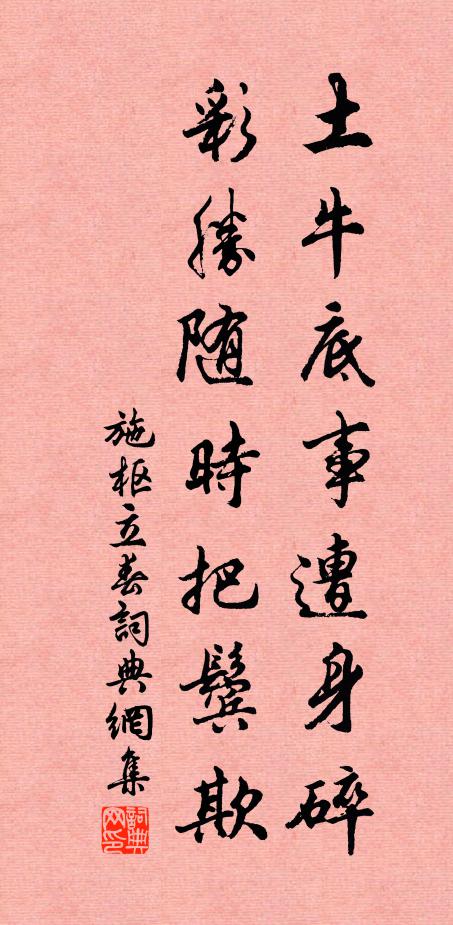 土牛底事遭身碎
彩勝随時把鬓欺
施枢立春詞典網集
詞典网印